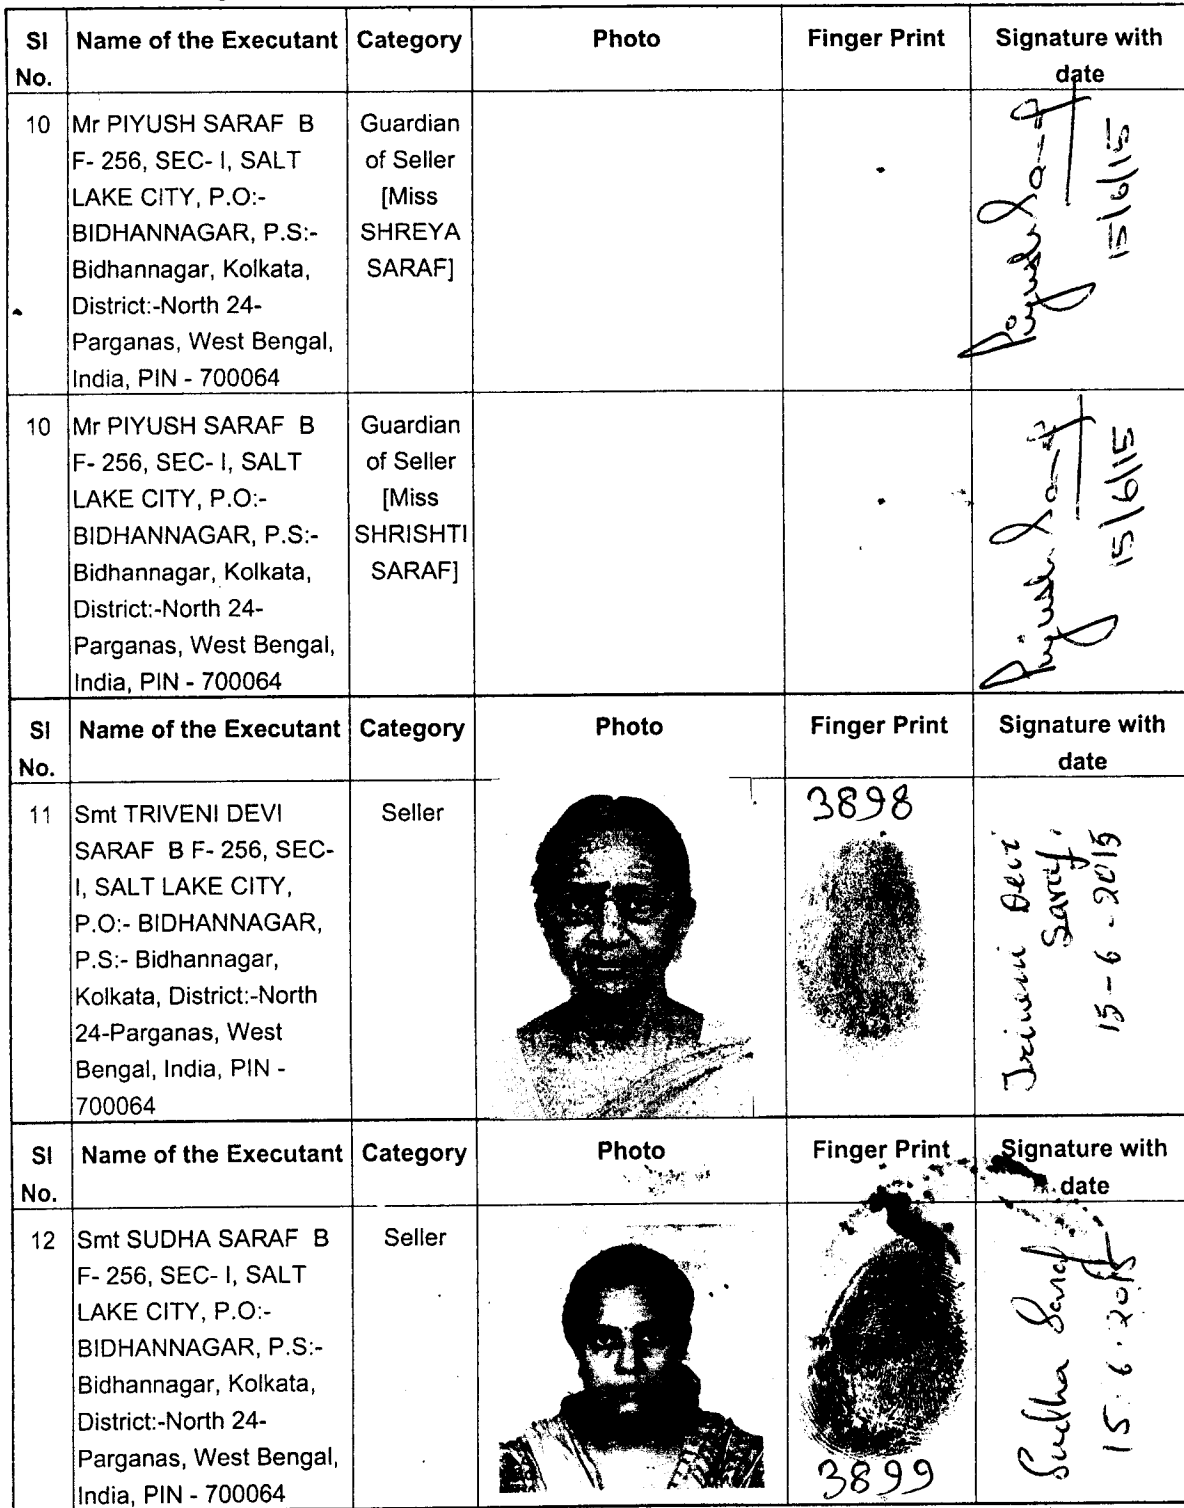 Sl No.
Name of the Executant
Category
Photo
Finger Print
Signature with date
10
Mr PIYUSH SARAF B
F- 256, SEC- I, SALT
LAKE CITY, P.O:-
BIDHANNAGAR, P.S:-
Bidhannagar, Kolkata,
District:-North 24-
Parganas, West Bengal,
India, PIN - 700064
Guardian
of Seller
[Miss
SHREYA
SARAF]
Piyush Saraf
15/6/15
10
Mr PIYUSH SARAF B
F- 256, SEC- I, SALT
LAKE CITY, P.O:-
BIDHANNAGAR, P.S:-
Bidhannagar, Kolkata,
District:-North 24-
Parganas, West Bengal,
India, PIN - 700064
Guardian
of Seller
[Miss
SHRISHTI
SARAF]
Piyush Saraf
15/6/15
Sl No.
Name of the Executant
Category
Photo
Finger Print
Signature with date
11
Smt TRIVENI DEVI
SARAF B F- 256, SEC-
I, SALT LAKE CITY,
P.O:- BIDHANNAGAR,
P.S:- Bidhannagar,
Kolkata, District:-North
24-Parganas, West
Bengal, India, PIN -
700064
Seller
3898
Triveni Devi
Saraf.
15-6-2015
Sl No.
Name of the Executant
Category
Photo
Finger Print
Signature with date
12
Smt SUDHA SARAF B
F- 256, SEC- I, SALT
LAKE CITY, P.O:-
BIDHANNAGAR, P.S:-
Bidhannagar, Kolkata,
District:-North 24-
Parganas, West Bengal,
India, PIN - 700064
Seller
3899
Sudha Saraf
15.6.2015